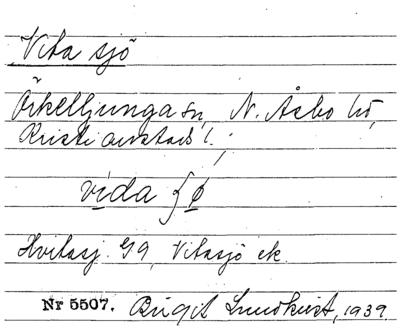 Vita sjö
Örkelljunga sn, N. Åsbo hd,
Kristianstads l.;
vida ʃø
Hvitasj. G9, Vitasjö ek.
Nr 5507. Birgit Lundkvist, 1939.